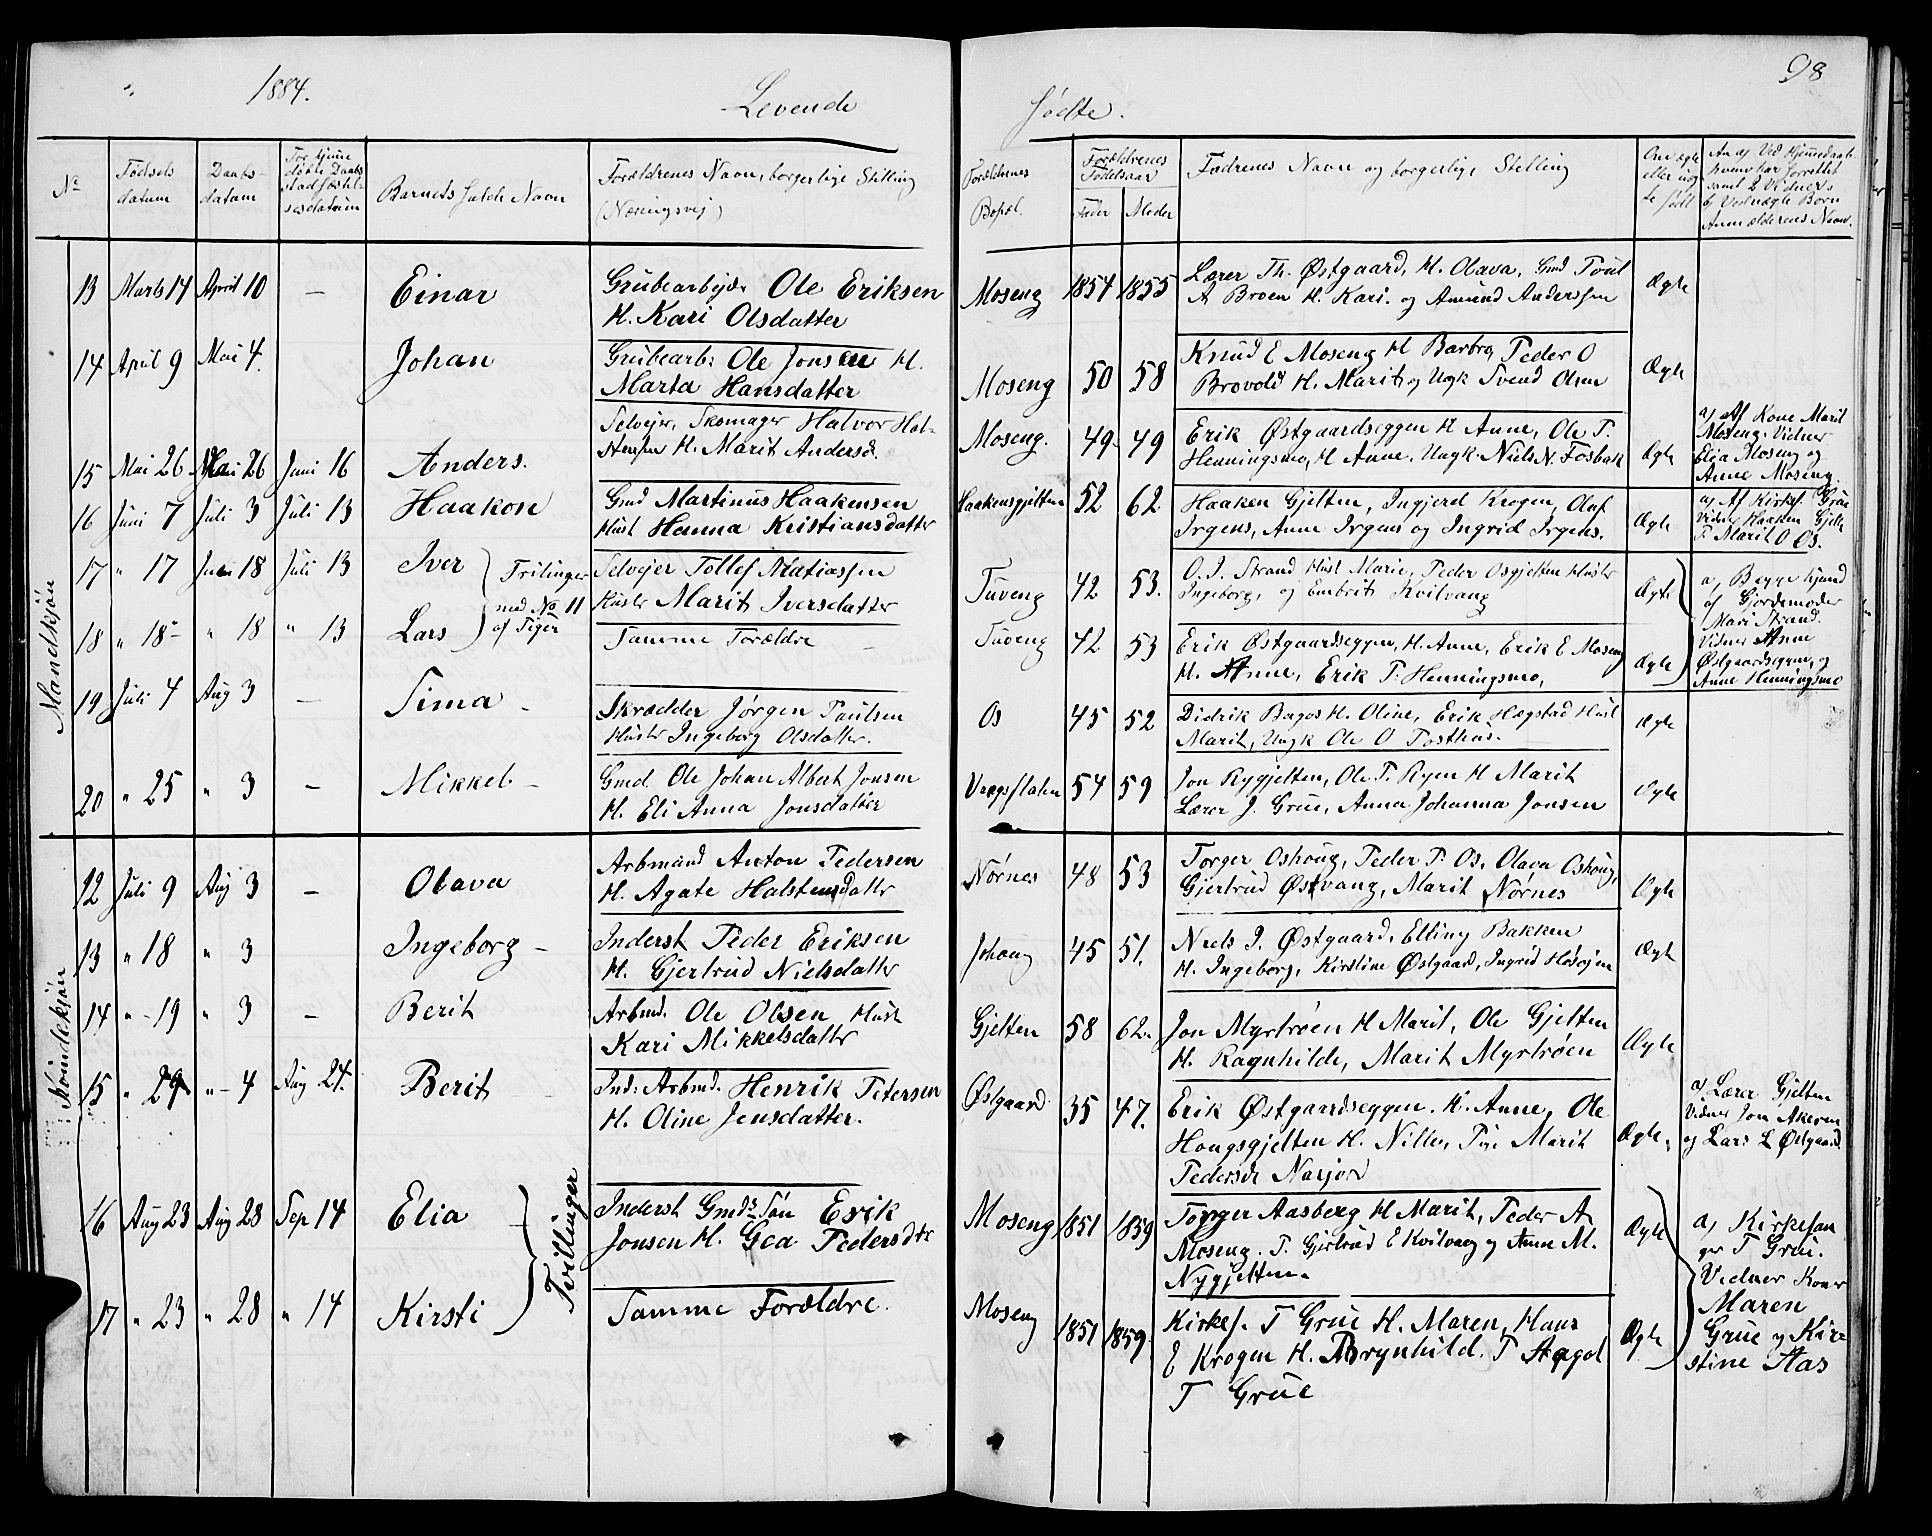 1884.
Levende
fødte.
98
No
Fødsels datum
Daabs- datum
For hjemme døbte Daabs stadfæstel- sesdatum
Barnets fulde Navn
Forældrenes Navn, borgerlige Stilling (Næringsvej)
Forældrenes Bopæl.
Forældrenes Fødselsaar
Fader
Moder
Fadrenes Navn og borgerlige Stilling
Om ægte eller uæg te født
Mandkjön
13 Marts 14 April 10 – Einar
Grubearbejder Ole Eriksen
H. Kari Olsdatter
Moseng 1854 1855
Lærer Th. Østgaard, H. Olava, Gmd Poul
A Broen H. Kari. og Amund Anderssen
Ægte
14 April 9 Mai 4. Johan
Grubearb: Ole Jonsen H.
Marta Hansdatter
Moseng 50 58
Knud E Moseng H Barbro, Peder O
Brovold H. Marit, og Ungk Svend Olsen
Ægte
15 Mai 26 Mai 26 Juni 16 Anders.
Selvejer, Skomager Halvor Hal-
stensen H. Marit Andersd.
Moseng. 49 49
Erik Østgaardseggen H Anne, Ole P.
Henningsmo, H Anne. Ungk. Niels N. Fosbak
Ægte
a, Af Kone Marit
Moseng. Vidner
Elia Moseng og
Anne Moseng.
16 Juni 7 Juli 3 Juli 13 Haakon
Gmd Martinus Haakensen
Hust Hanna Kristiansdatter
Haakensgjelten 52 62
Haaken Gjelten, Ingjerd Krogen, Oluf
Irgens, Anne Irgens og Ingrid Irgens.
Ægte
a, Af Kirkes. Grue
Vidner Haaken Gjelt
P. Marit O Os.
17 " 17 Juni 18 Juli 13 Iver
Trilinger
med No 11
af Piger
Selvejer Tollef Matiassen
Hustr Marit Iversdatter
Tuveng 42 53.
O. J. Strand Hust Marie, Peder Osgjelten Hustr
Ingeborg, og Embrit Kvilvang
Ægte
a, Begge hjemd
af Gjordemoder
Mari Strand.
Vidner Anne
Østgaardseggen, og
Anne Henningsmo
18 " 18 – " 18 " 13 Lars
Samme Forældre –
Tuveng 42 53
Erik Østgaardseggen, H. Anne, Erik E Moseng
H. Anne, Erik P. Henningsmo,
Ægte
19 Juli 4 Aug 3 – Sima –
Skrædder Jørgen Paulsen
Hustr Ingeborg Olsdatter.
Os 45 52
Didrik Bagos H. Oline, Erik Hægstad Hust
Marit, Ungk Ole O Posthus.
Ægte
20 " 25 " 3 – Mikkel –
Gmd. Ole Johan Albert Jonsen
H. Eli Anna Jonsdatter
Vangsflaten 54 59
Jon Rygjelten, Ole P. Ryen H Marit
Lærer J. Grue, Anna Johanna Jonsen
Ægte
Kvindekjön
12 Juli 9 Aug 3 – Olava
Arbmand Anton Pedersen
H. Agate Halstensdatter
Nørnes 48 53
Torger Oshoug, Peder P. Os, Olava Oshoug,
Gjertrud Østvang, Marit Nørnes
Ægte
13 " 18 " 3 Ingeborg –
Inderst Peder Eriksen
H. Gjertrud Nielsdatter
Johaug 45 51.
Niels J. Østgaard, Elling Bakken
H. Ingeborg, Kirstine Østgaard, Ingrid Høsøjen
Ægte
14 " – 19 " 3 – Berit
Arbmd. Ole Olsen Hust
Kari Mikkelsdatter
Gjelten 58 62.
Jon Myrtrøen H Marit, Ole Gjelten
H. Ragnhilde, Marit Myrtrøen
Ægte
15 " 29 " – 4 Aug 24. Berit
Ind: Arbmd. Henrik Petersen
H. Oline Jensdatter.
Østgaard 35 47.
Erik Østgaardseggen. H. Anne, Ole
Hougsgjelten H. Nille, Pige Marit
Pedersdr Narjor
Ægte.
a, Lærer Gjelten
Vidner Jon Akeren
og Lars L Østgaard.
16 Aug 23 Aug 28 Sep 14 Elia –
Tvillinger
Inderst Gmds Søn Erik
Jonsen H. Gea Pedersdtr
Moseng 1851 1859
Torger Aasberg H Marit, Peder A
Moseng. P. Gjertrud E Kvilvang og Anne M.
Nygjelten.
Ægte
a, Kirkesan
ger T Grue.
Vidner Koner
Maren
Grue og Kir
stine Aas
17 " 23 " 28 " 14 Kirsti
Samme Forældre.
Moseng 1851 1859.
Kirkes. T Grue H. Maren, Hans
E Krogen H. Brynhild. P Aagot
T Grue
Ægte